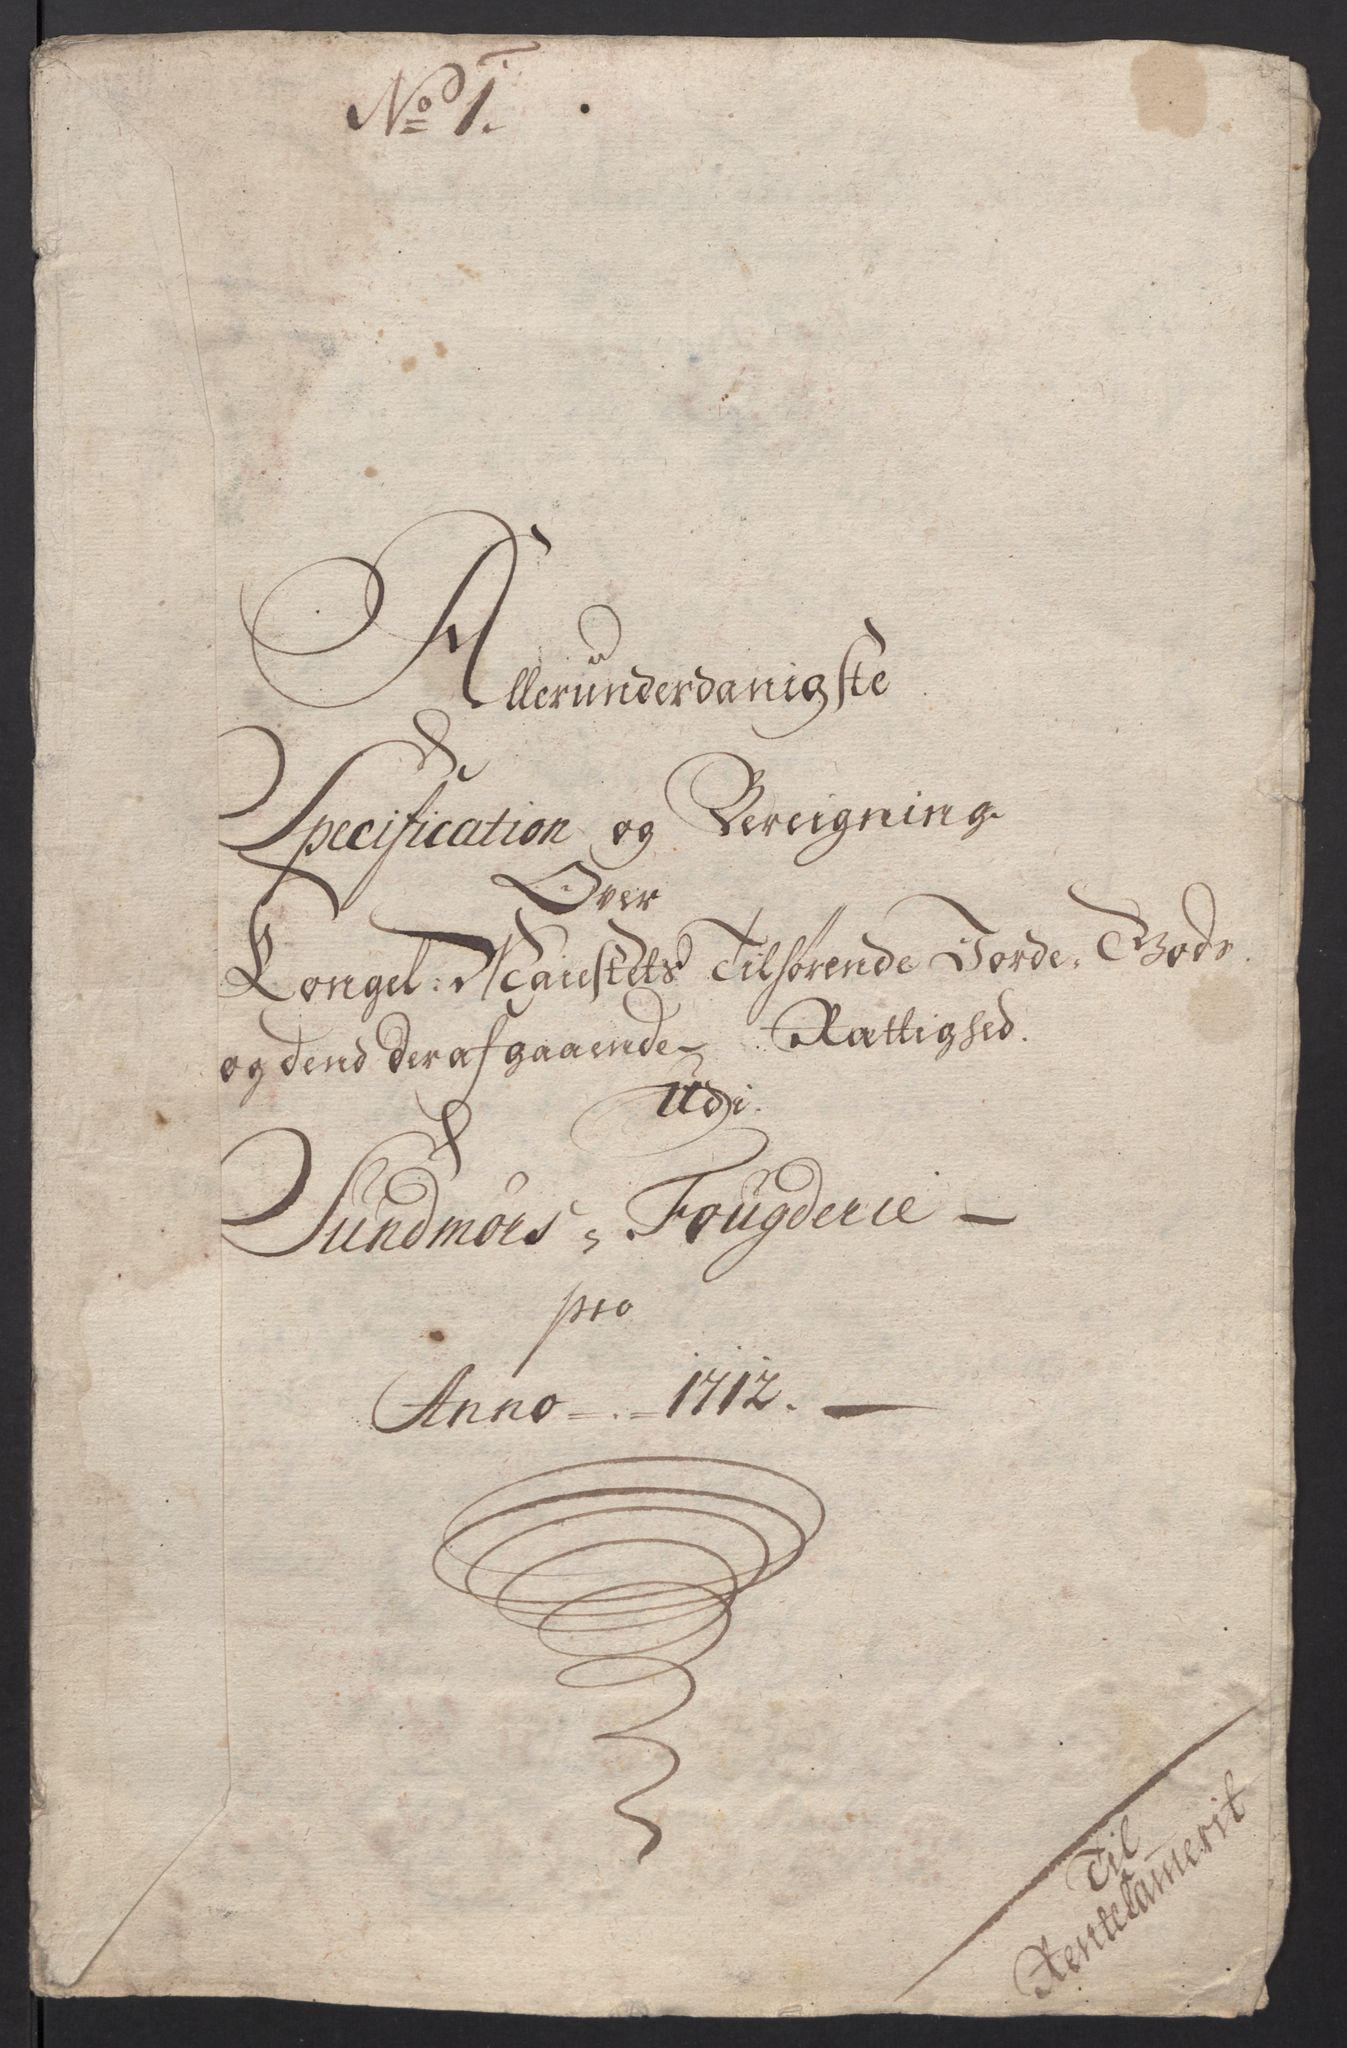 No 1.
Allerunderdanigste
Specification og Bereigning
Over
Kongel: Maiestets Tilhørende Jorde-Gods
og dend deraf gaaende Rættighed.
Udi
Sundmørs Fougderie
pro
Anno 1712.
Til
Rentekamerit